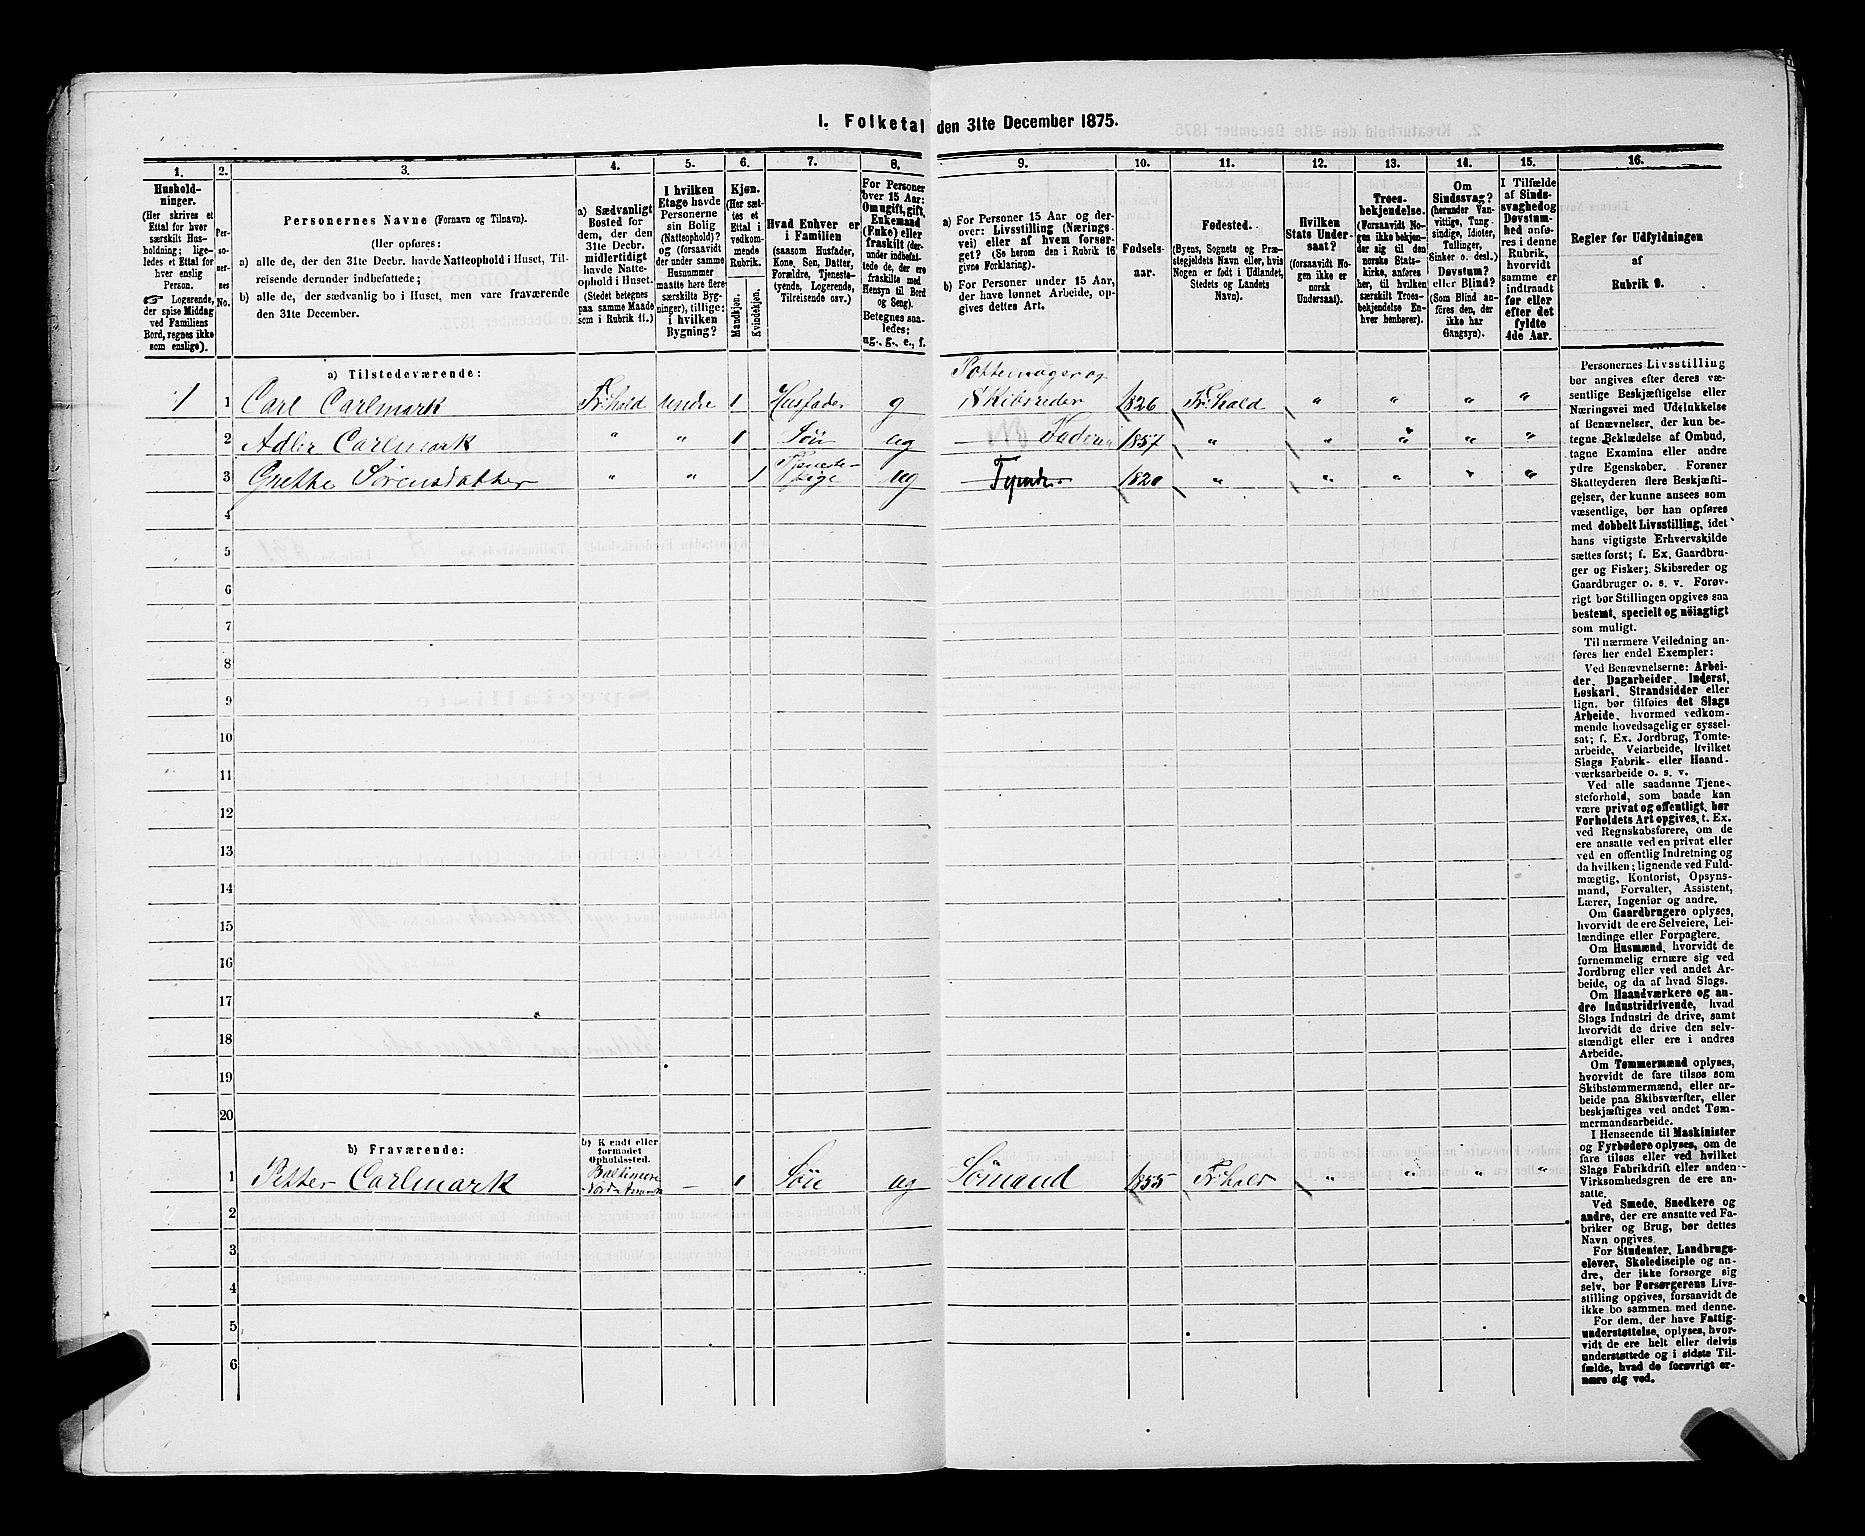 1. Folketal den 31te December 1875.
1.
2.
3.
4.
5.
6.
7.
8.
9.
10.
11.
12.
13.
14.
15.
16.
Hushold-
ninger.
(Her skrives et
Ettal for hver
særskilt Hus-
holdning; lige-
ledes et Ettal for
hver enslig
Person.
☞ Logerende,
der spise Middag
ved Familiens
Bord, regnes ikke
som enslige).
Per-
so-
ner-
nes
No.
Personernes Navne (Fornavn og Tilnavn).
(Her opføres:
a) alle de, der den 31te Decbr. havde Natteophold i Huset, Til-
reisende derunder indbefattede;
b) alle de, der sædvanlig bo i Huset, men vare fraværende
den 31te December.
a) Sædvanligt
Bosted for
dem, der den
31te Decbr.
midlertidigt
havde Natte-
ophold i Huset.
(Stedet betegnes
paa samme Maade
som i Rubrik 11.)
I hvilken
Etage havde
Personerne
sin Bolig
(Natteophold)?
og (forsaavidt
der under samme
Husnummer
maatte høre flere
særskilte Byg-
ninger), tillige:
i hvilken
Bygning?
Kjøn.
(Her sæt-
tes et
Ettal i
vedkom-
mende
Rubrik.
Mandkjøn.
Kvindekjøn.
Hvad Enhver er
i Familien
(saasom Husfader,
Kone, Søn, Datter,
Forældre, Tjeneste-
tyende, Logerende,
Tilreisende osv.)
For Personer
over 15 Aar:
Om ugift, gift,
Enkemand
(Enke) eller
fraskilt (der-
under indbefat-
tede de, der ere
fraskilte med
Hensyn til Bord
og Seng).
Betegnes saa-
ledes:
ug., g., e., f.
a) For Personer 15 Aar og der-
over: Livsstilling (Nærings-
vei) eller af hvem forsør-
get? (Se herom den i Rubrik 16
givne Forklaring).
b) For Personer under 15 Aar,
der have lønnet Arbeide, op-
gives dettes Art.
Fødsels-
aar.
Fødested.
(Byens, Sognets og Præ-
stegjeldets Navn eller, hvis
Nogen er født i Udlandet,
Stedets og Landets
Navn).
Hvilken
Stats Under-
saat?
(forsaavidt No-
gen ikke er
norsk
Undersaat).
Troes-
bekjendelse.
(Forsaavidt No-
gen ikke bekjen-
der sig til den
norske Stats-
kirke, anføres
her, til hvilket
særskilt Troes-
bekjendelse En-
hver henhører).
Om
Sindssvag?
(herunder Van-
vittige, Tung-
sindige, Idioter,
Tullinger,
Sinker o. desl.)
Døvstum?
eller Blind?
(Som Blind an-
føres den, der
ikke har
Gangsyn).
I Tilfælde
af Sinds-
svaghed og
Døvstum-
hed anfø-
res i denne
Rubrik,
hvorvidt
samme er
indtraadt
før eller
efter det
fyldte
4de Aar.
Regler for Udfyldningen
af
Rubrik 9.
a) Tilstedeværende:
1 1 Carl Carlmark Fr.hald Undre 1 Husfader g Pottemager og Skibsreder 1826 Fr.hald " " " "
2 Adler Carlmark " " 1 Søn ug — Faderen 1857 " " " " "
3 Grethe Sørensdatter " " 1 Tjeneste-pige ug — Tyende 1820 " " " " "
4
5
6
7
8
9
10
11
12
13
14
15
16
17
18
19
20
b) Fraværende:
b) Kjendt eller
formodet
Opholdssted.
1 Petter Carlmark Baltimore Nord Amerika — 1 Søn ug Sømand 1855 Fr.hald " " " "
2
3
4
5
6
Personernes Livsstilling
bør angives efter deres væ-
sentlige Beskjæftigelse eller
Næringsvei med Udelukkelse
af Benævnelser, der kun be-
tegne Beklædelse af Ombud,
tagne Examina eller andre
ydre Egenskaber. Forener
Skatteyderen flere Beskjæfti-
gelser, der kunne ansees som
væsentlige, bør han opføres
med dobbelt Livsstilling, idet
hans vigtigste Erhvervskilde
sættes først; f. Ex. Gaardbru-
ger og Fisker; Skibsreder og
Gaardbruger o. s. v. Forøv-
rigt bør Stillingen opgives saa
bestemt, specielt og nöiagtigt
som muligt.
Til nærmere Veiledning an-
føres her endel Exempler:
Ved Benævnelserne: Arbei-
der, Dagarbeider, Inderst,
Løskarl, Strandsidder eller
lign. bør tilføies det Slags
Arbeide, hvormed vedkom-
mende hovedsagelig er syssel-
sat; f. Ex. Jordbrug, Tomte-
arbeide, Veiarbeide, hvilket
Slags Fabrik- eller Haand-
værksarbeide o. s. v.
Ved alle saadanne Tjene-
steforhold, som baade kan
være privat og offentligt, bør
Forholdets Art opgives, t. Ex.
ved Regnskabsførere, om de
ere ansatte ved en privat eller
ved en offentlig Indretning og
da hvilken; lignende ved Fuld-
mægtig, Kontorist, Opsyns-
mand, Forvalter, Assistent,
Lærer, Ingeniør og andre.
Om Gaardbrugere oplyses,
hvorvidt de ere Selveiere, Lei-
lændinge eller Forpagtere.
Om Husmænd, hvorvidt de
fornemmelig ernære sig ved
Jordbrug eller ved andet Ar-
beide, og da af hvad Slags.
Om Haandværkere og an-
dre Industridrivende, hvad
Slags Industri de drive, samt
hvorvidt de drive den selv-
stændigt eller ere i andres
Arbeide.
Om Tømmermænd oplyses,
hvorvidt de fare tilsøs som
Skibstømmermænd, eller ar-
beide paa Skibsværfter, eller
beskjæftiges ved andet Tøm-
mermandsarbeide.
I Henseende til Maskinister
og Fyrbødere oplyses, om de
fare tilsøs eller ved hvilket
Slags Fabrikdrift eller anden
Virksomhedsgren de ere an-
satte.
Ved Smede, Snedkere og
andre, der ere ansatte ved Fa-
briker og Brug, bør dettes
Navn opgives.
For Studenter, Landbrugs-
elever, Skoledisciple og an-
dre, der ikke forsørge sig
selv, bør Forsørgerens Livs-
stilling opgives, forsaavidt de
ikke bo sammen med denne.
For dem, der have Fattig-
understøttelse, oplyses, hvor-
vidt de ere helt eller delvis
understøttede og i sidste Til-
fælde, hvad de forøvrigt er-
nære sig ved.